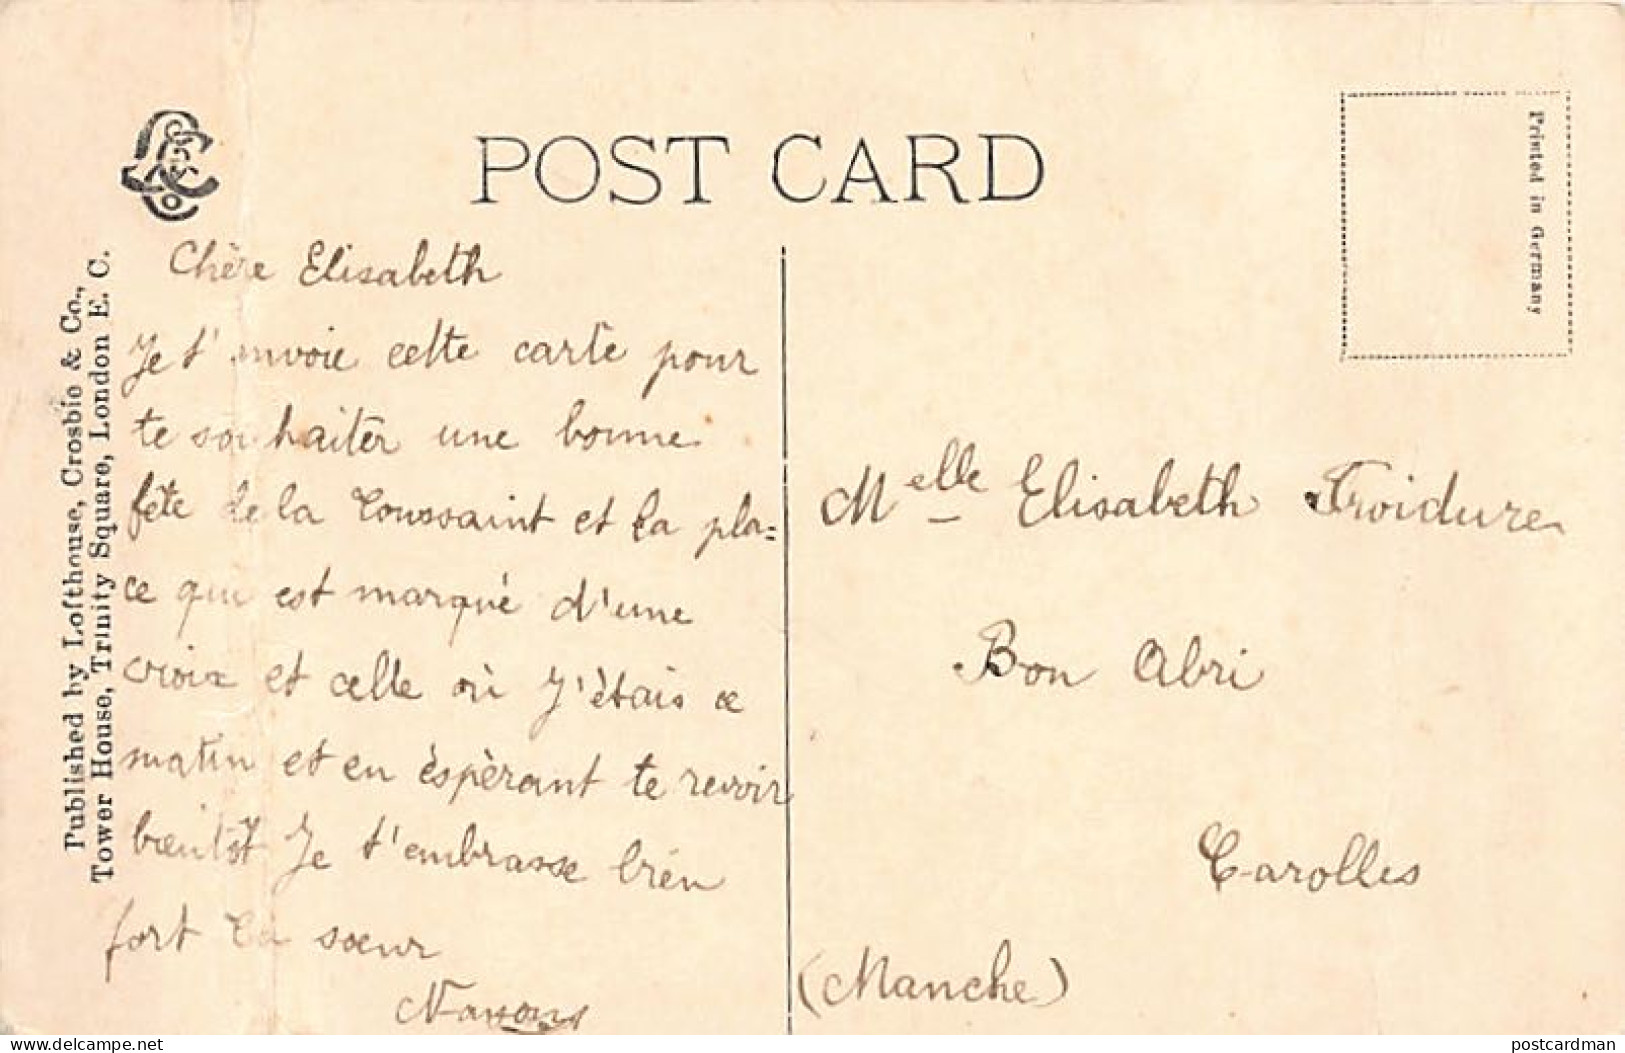 POST CARD
Printed in Germany
Published by Lofthouse, Crosbie & Co.,
Tower House, Trinity Square, London E. C.
Chère Elisabeth
Je t'envoie cette carte pour
te souhaiter une bonne
fête de la Toussaint et la pla=
ce qui est marqué d'une
croix et celle où J'ètais ce
matin et en èspèrant te revoir
bientôt Je t'embrasse bien
fort ta sœur
Melle Elisabeth Froidure
Bon Abri
Carolles
(Manche)
www.delcampe.net
postcardman